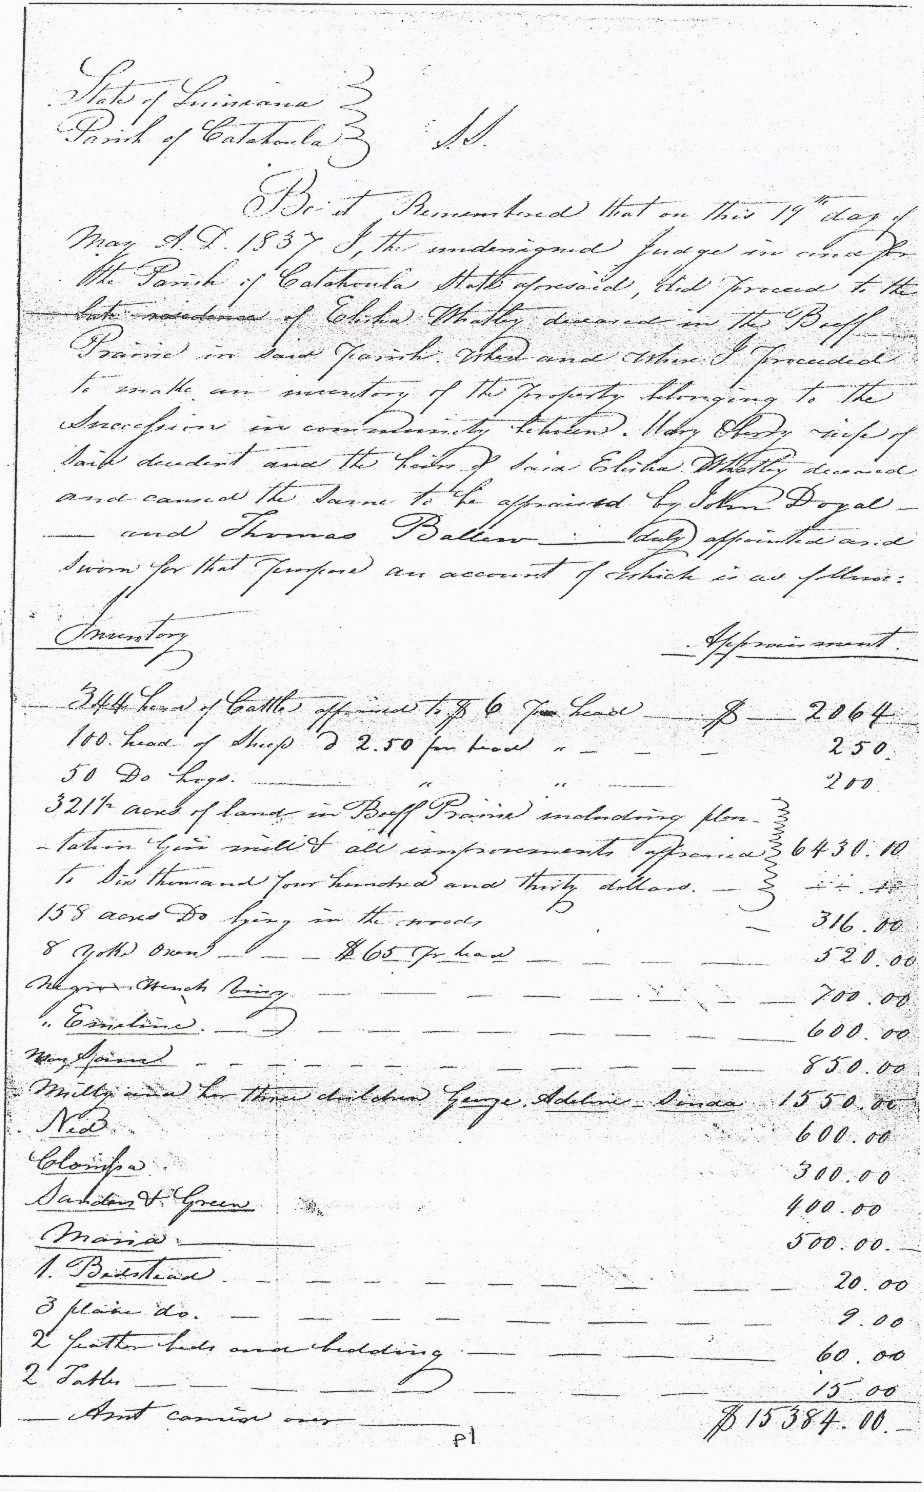 State of Luisiana
Parish of Catahoula S.S.
Be it Remembered that on this 19th day of
May A.D. 1837 I, the undersigned Judge in and for
the Parish of Catahoula State aforesaid, did proceed to the
late residence of Elisha Whatley deceased in the Boeff
Prairie in said Parish. when and where I proceeded
to make an inventory of the property belonging to the
Succession in community between Mary wife of
said decedent and the heirs of said Elisha Whatley deceased
and caused the same to be appraised by John Doyal -
- and Thomas Ballew - duly appointed and
sworn for that purpose an account of which is as follows:
Inventory Appraisment.
344 head of Cattle appraised to $ 6 Per head $ 2064
100. head of Sheep 2.50 per head " - - - 250.
50 Do hogs. " " 200
321 acres of land in Boeff Prairie including plan-
-tation Gin mill & all improvements appraised 6430.00
to Six thousand four hundred and thirty dollars. -
158 acres Do lying in the woods - 316.00
8 yoke oxen - - - $65 Pr head - - - 520.00
Negro Wench - - - 700.00
" Emeline. - - - 600.00
- - - 850.00
Milly and her three children George. Adeline - Sinda 1550.00
Ned. 600.00
300.00
Sanders & Green 400.00
Maria. 500.00. -
1. Bedstead. - - - 20.00
3 plain do. - - - 9.00
2 feather beds and bedding - - - 60.00
2 Tables - - - 15.00
- Amt carried over - $15384.00. -
p1